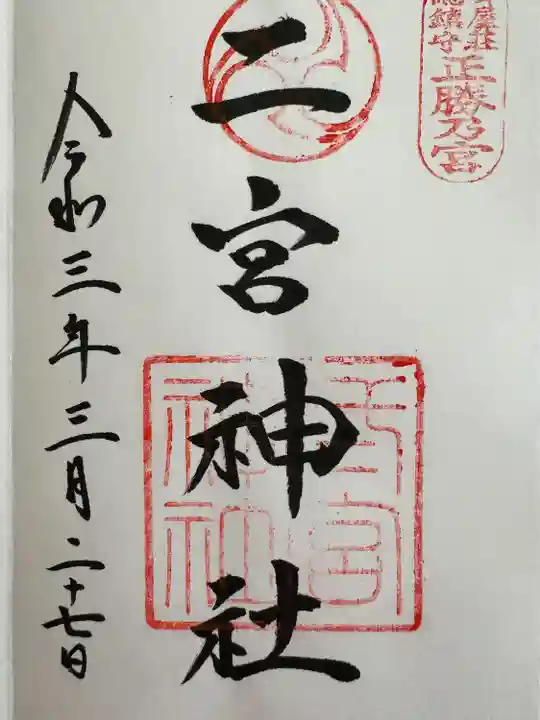 正勝乃宮
総鎮守
二宮神社
二宮神社
令和三年三月二十七日